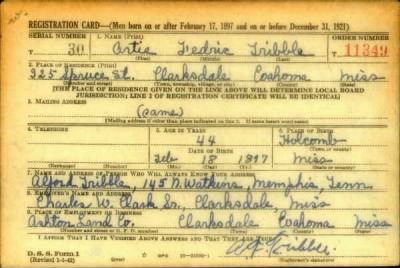 REGISTRATION CARD—(Men born on or after February 17, 1897 and on or before December 31, 1921)
SERIAL NUMBER 1. NAME (Print) ORDER NUMBER
T 30 Artie Fedric Tribble T 11349
(First) (Middle) (Last)
2. PLACE OF RESIDENCE (Print)
325 Spruce St. Clarksdale Coahoma Miss
(Number and street) (Town, township, village, or city) (County) (State)
[THE PLACE OF RESIDENCE GIVEN ON THE LINE ABOVE WILL DETERMINE LOCAL BOARD
JURISDICTION; LINE 2 OF REGISTRATION CERTIFICATE WILL BE IDENTICAL]
3. MAILING ADDRESS
(Same)
[Mailing address if other than place indicated on line 2. If same insert word same]
4. TELEPHONE 5. AGE IN YEARS 6. PLACE OF BIRTH
44 Holcomb
DATE OF BIRTH (Town or county)
Feb 18 1897 Miss
(Exchange) (Number) (Mo.) (Day) (Yr.) (State or country)
7. NAME AND ADDRESS OF PERSON WHO WILL ALWAYS KNOW YOUR ADDRESS
Alford Tribble, 145 N. Watkins, Memphis, Tenn.
8. EMPLOYER'S NAME AND ADDRESS
Charles W. Clark Sr., Clarksdale, Miss
9. PLACE OF EMPLOYMENT OR BUSINESS
Ashton Land Co. Clarksdale Coahoma Miss
(Number and street or R. F. D. number) (Town) (County) (State)
I AFFIRM THAT I HAVE VERIFIED ABOVE ANSWERS AND THAT THEY ARE TRUE.
Tribble
D. S. S. Form 1
(Revised 1-1-42) (over) (Registrant's signature)